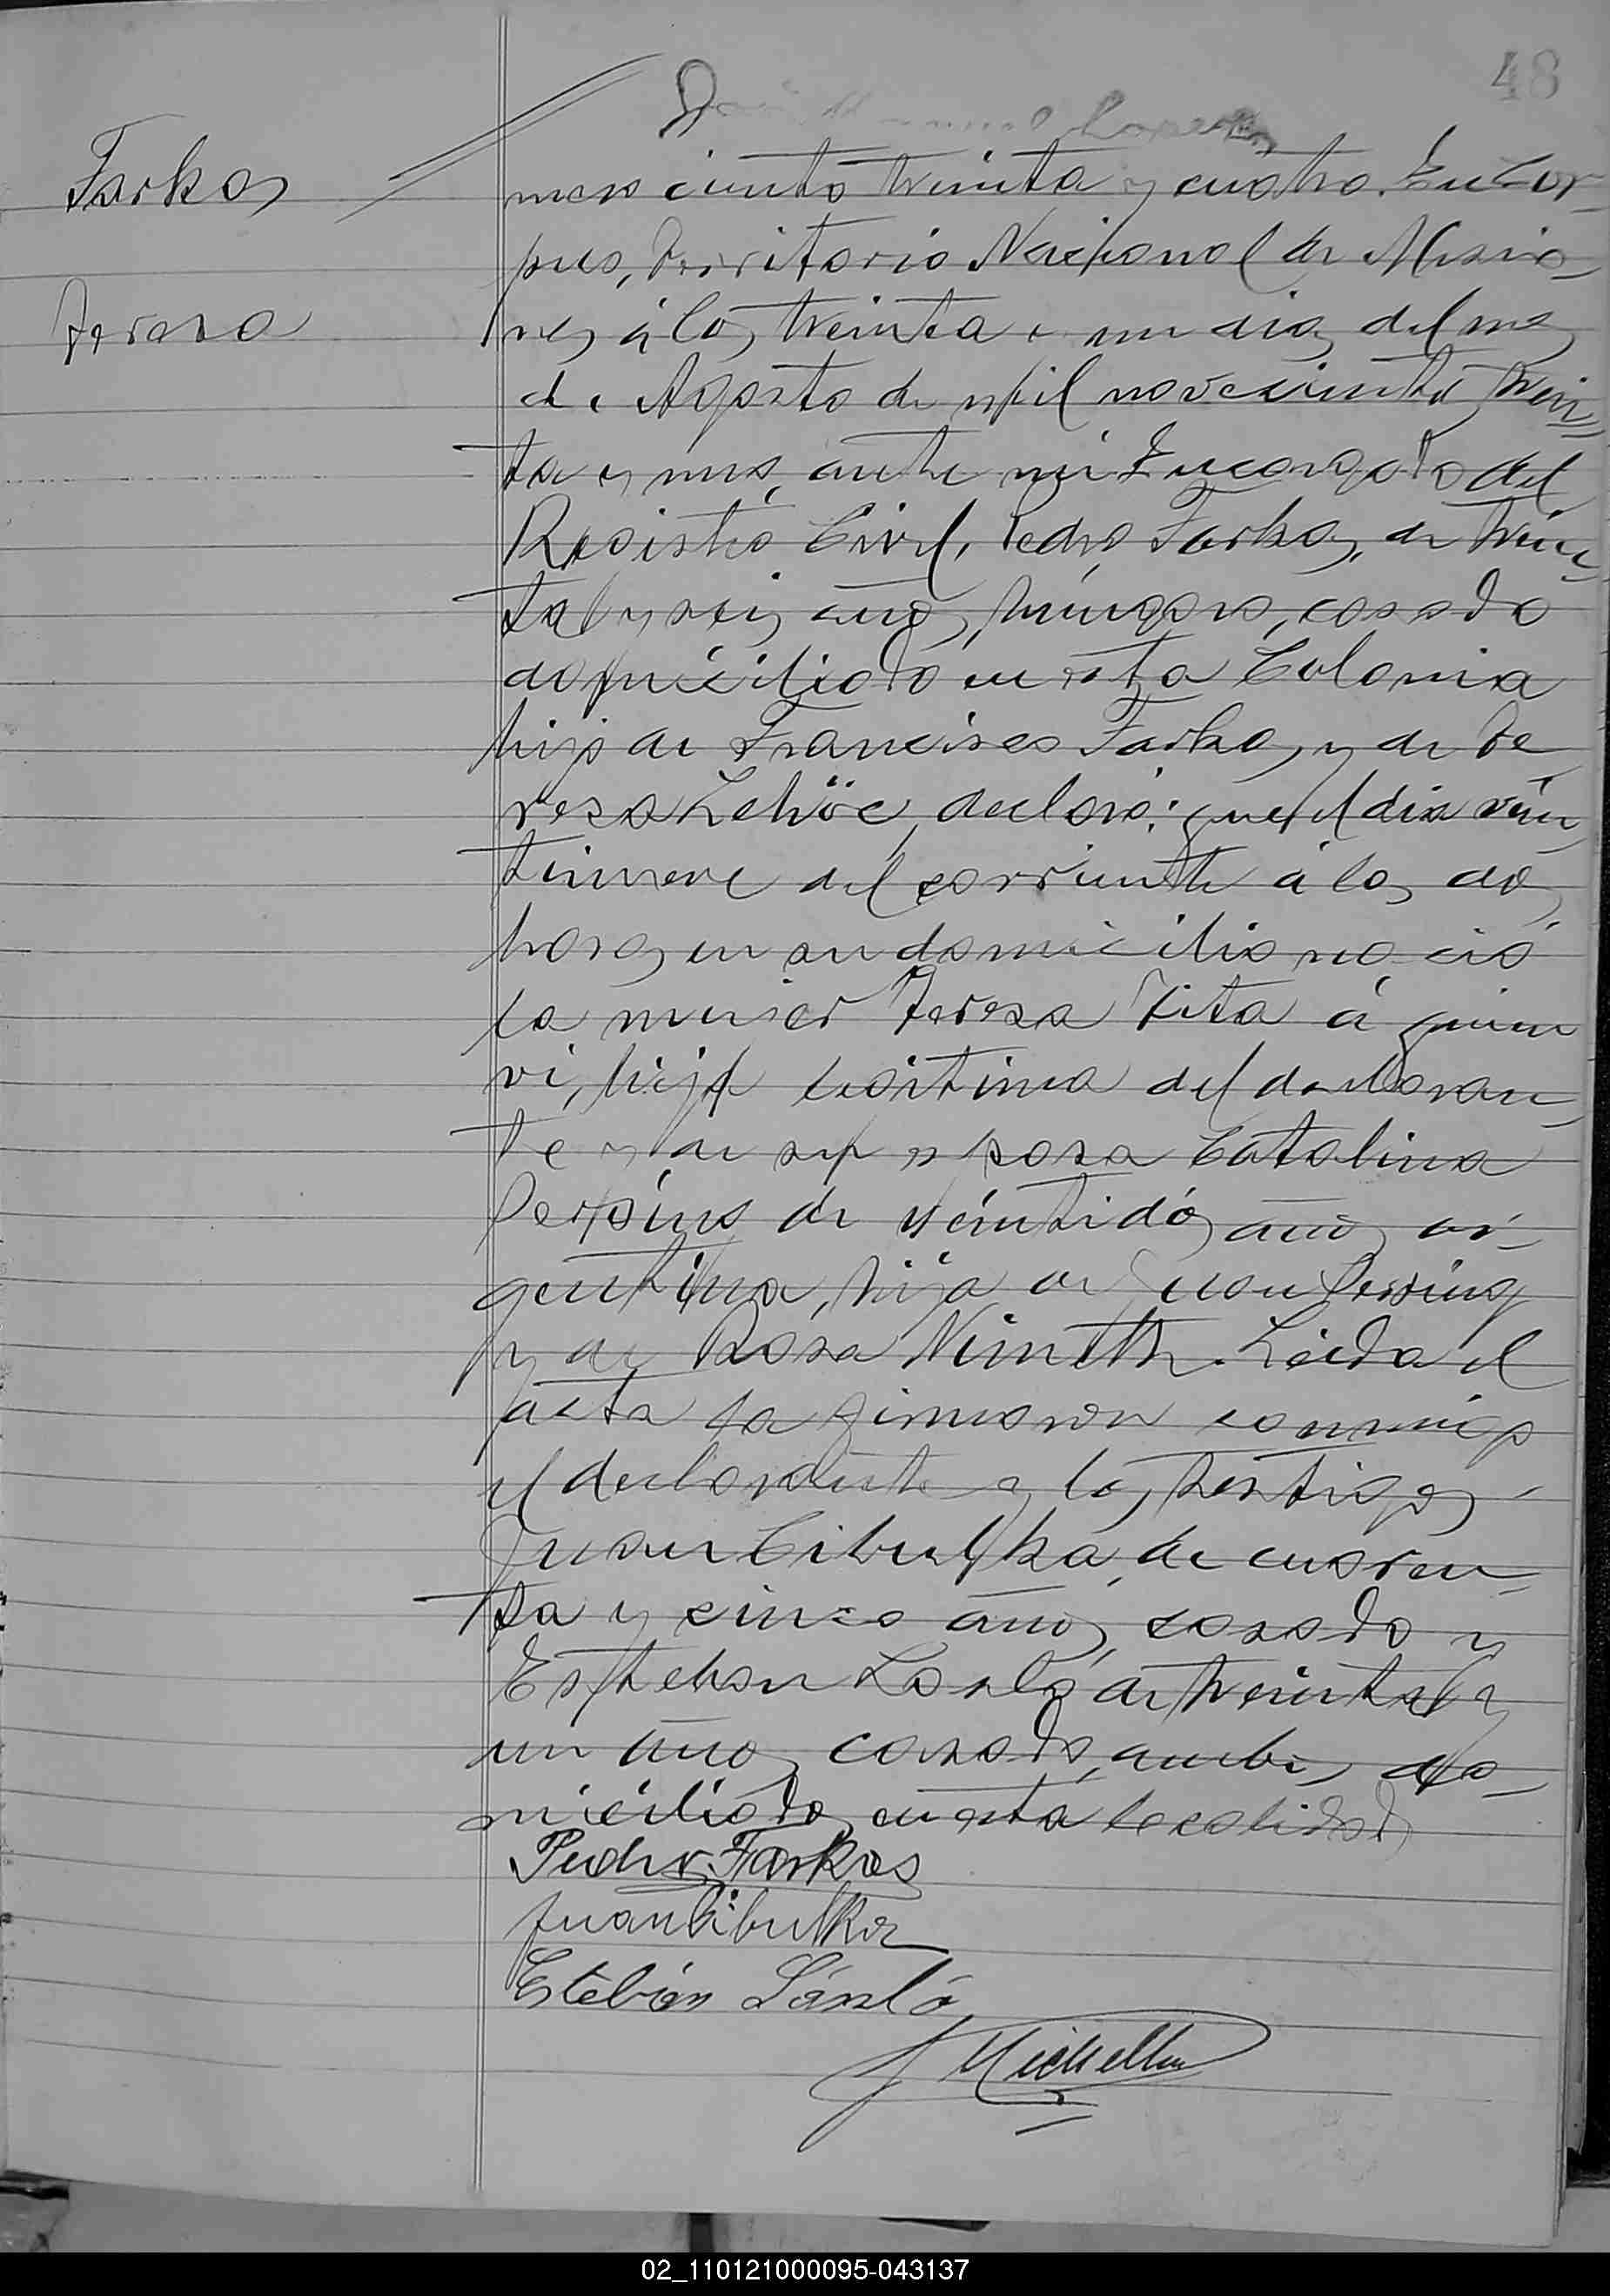 48
Farkas
Teresa
mero ciento treinta y cuatro. En Cor-
pus, Territorio Nacional de Misio-
nes, á los treinta y un dias del mes
de Agosto de mil novecientos trein-
ta y uno, ante mi Encargado del
Registro Civil, Pedro Farkas, de trein-
ta y seis años, húngaro, casado
domiciliado en esta Colonia
hijo de Francisco Farkas y de Te-
resa declaró: que el dia vein-
tinueve del corriente á las dos
horas en su domicilio nació
la mujer Teresa Tita á quien
vi, hija legitima del declaran-
te y de su esposa Catalina
de veintidós años, ar-
gentina, hija de Juan
y de Rosa Nimeth. Leida el
acta la firmaron conmigo
el declarante y los testigos
Juan Cibulka, de cuaren-
ta y cinco años, casado y
Esteban Lasló de treinta y
un años, casado, ambos do-
miciliados en esta localidad
Pedro Farkas
Juan Cibulka
Estebán László
02_110121000095-043137